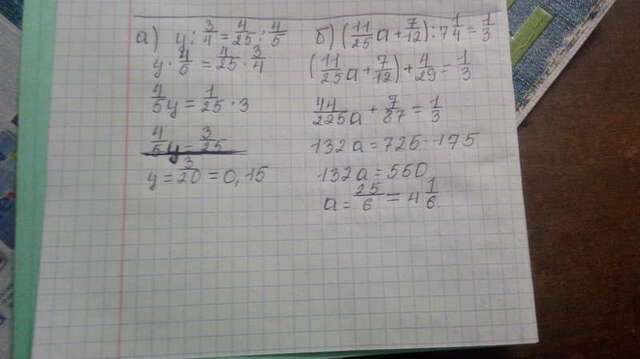 а) y : 3/4 = 4/25 : 4/5
y · 4/5 = 4/25 · 3/4
4/5 y = 1/25 · 3
4/5 y = 3/25
y = 3/20 = 0,15
б) (11/25 a + 7/12) : 7 1/4 = 1/3
(11/25 a + 7/12) + 4/29 = 1/3
44/225 a + 7/87 = 1/3
132a = 725 - 175
132a = 550
a = 25/6 = 4 1/6